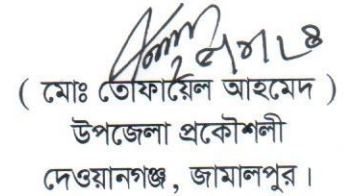 ( মোঃ তোফায়েল আহমেদ )
উপজেলা প্রকৌশলী
দেওয়ানগঞ্জ, জামালপুর।